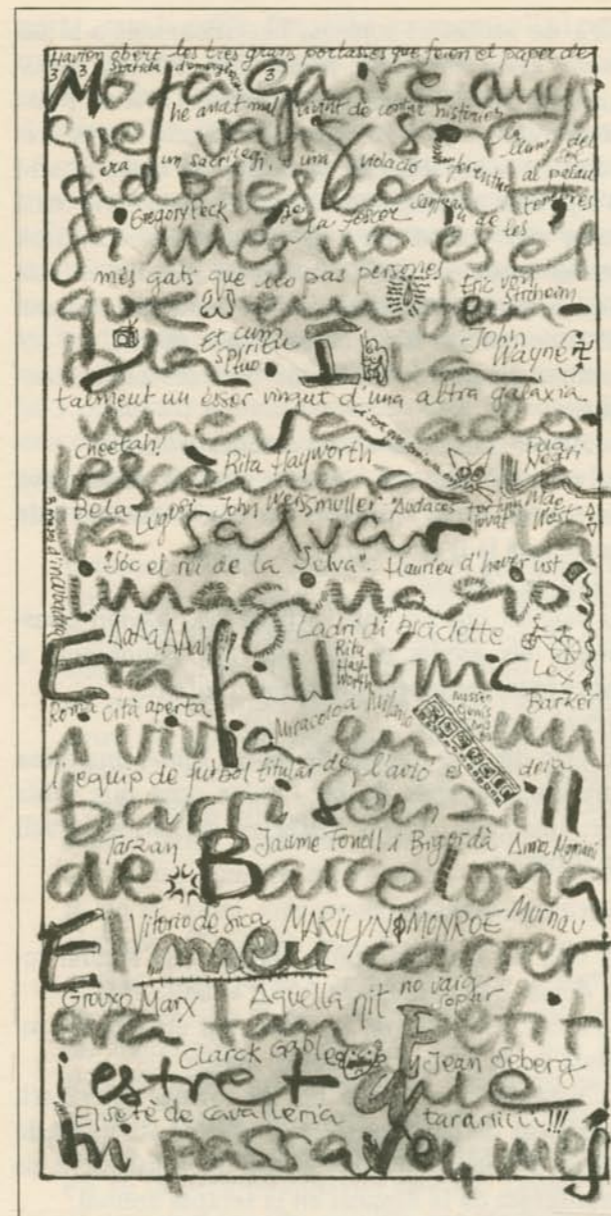 Havien obert les tres grans portasses que feien el paper de
3 3 Sortida d'emergència 3
No fa gaire anys
he anat mal vivint de contar històries
que vaig ser
la llum del
era un sacrilegi, una violació
al palau
adolescent,
Gregory Peck
La Foscor
de les tenebres
si més no és el
més gats que no pas persones
Eric von Stroheim
que em sem-
Et cum spiritu tuo
John Wayne
bla. I la
talment un ésser vingut d'una altra galàxia
meva ado-
Cheetah!
Rita Hayworth
Pola Negri
lescència la
Bela Lugosi
John Weissmuller
"Audaces fortuna iuvat
Mae West
va salvar la
"Sóc el rei de la Selva". Hauríeu d'haver vist
imaginació.
AaAaAAah!!
Ladri di biciclette
Era fill únic
Rita Hayworth
Lex Barker
Roma città aperta
Miracolo a Milano
i vivia en un
l'equip de futbol titular de l'avió es deia
barri senzill
Tarzan
Jaume Fonoll i Bigordà
Anna Magnani
de Barcelona
Vitorio de Sica
MARILYN MONROE
Murnau
El meu carrer
Grouxo Marx
Aquella nit no vaig sopar
era tan petit
Clarck Gable
Jean Seberg
i estret que
El setè de cavalleria
tarariiiii!!!
hi passaven més